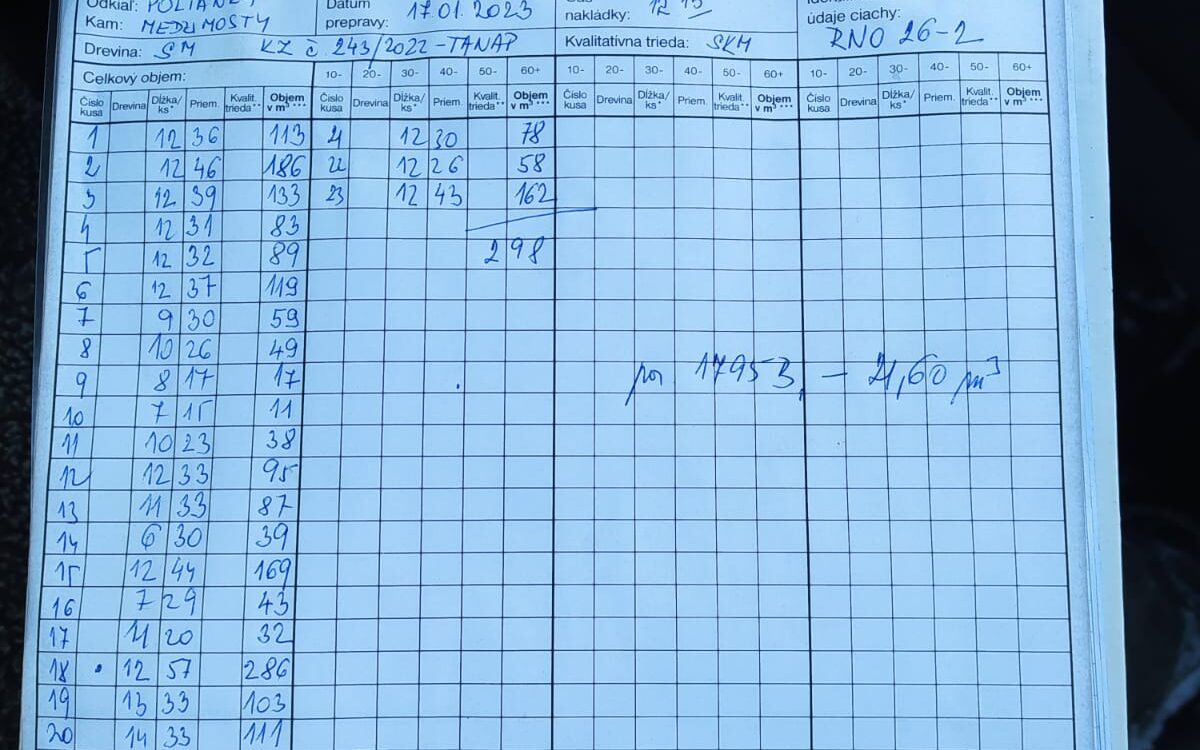 Odkiaľ: POLIANKY Dátum prepravy: 17.01.2023 nakládky: 12 15
Kam: MEDZIMOSTY údaje ciachy: RNO 26-2
Drevina: SM KZ č 243/2022-TANAP Kvalitatívna trieda: SKM
Celkový objem: 10- 20- 30- 40- 50- 60+ 10- 20- 30- 40- 50- 60+ 10- 20- 30- 40- 50- 60+
Číslo kusa Drevina Dĺžka/ks* Priem. Kvalit. trieda** Objem v m³*** Číslo kusa Drevina Dĺžka/ks* Priem. Kvalit. trieda** Objem v m³*** Číslo kusa Drevina Dĺžka/ks* Priem. Kvalit. trieda** Objem v m³*** Číslo kusa Drevina Dĺžka/ks* Priem. Kvalit. trieda** Objem v m³***
1 12 36 113 21 12 30 78
2 12 46 186 22 12 26 58
3 12 39 133 23 12 43 162
4 12 31 83
5 12 32 89 298
6 12 37 119
7 9 30 59
8 10 26 49
9 8 17 17 - 21,60 m³
10 7 15 11
11 10 23 38
12 12 33 95
13 11 33 87
14 6 30 39
15 12 44 169
16 7 29 43
17 11 20 32
18 12 57 286
19 13 33 103
20 14 33 111